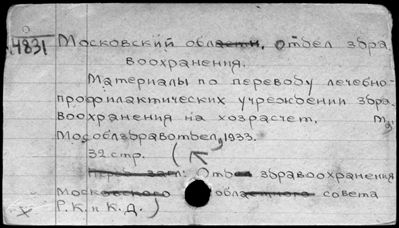 4831 Московский област. Отдел здра
воохранения.
Материалы по переводу лечебно-
профилактических учреждении здра
воохранения на хозрасчет. М,
Мособлздравотдел, 1933. д.
32 стр. (
Отдел здравоохранения
Московского областного совета
Р.К. и К.Д.)
X